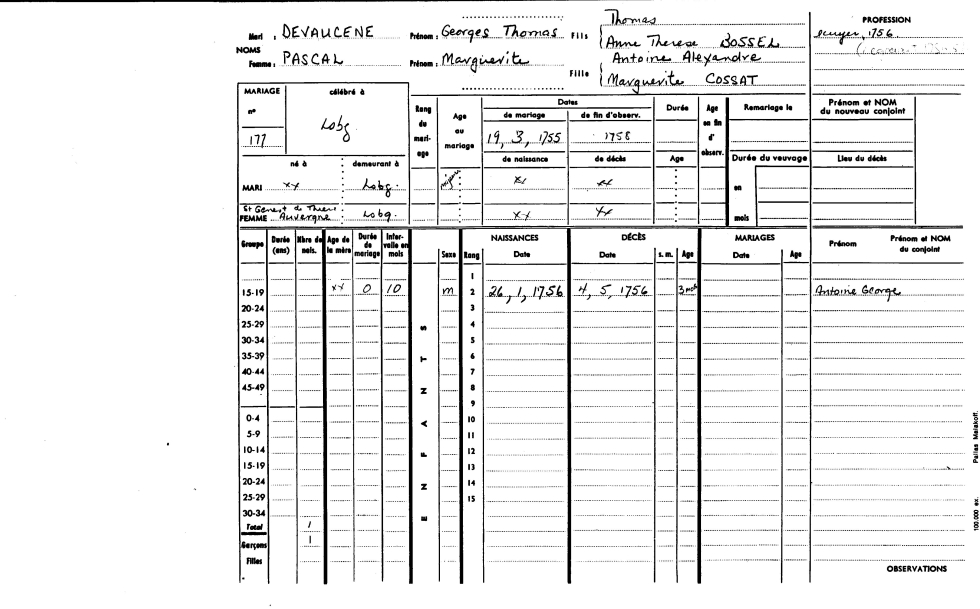 Thomas PROFESSION
Mari : DEVAUCENE Prénom : Georges Thomas Fils Anne Therese BOSSEL ecuyer, 1756
NOMS Antoine Alexandre
Femme : PASCAL Prénom : Marguerite Fille Marguerite COSSAT
MARIAGE célébré à Rang du mari-age Age au mariage Dates Durée Age en fin d'observ. Remariage le Prénom et NOM du nouveau conjoint
n° de mariage de fin d'observ.
177 Lobg 19, 3, 1755 1758
né à demeurant à de naissance de décès Age Durée du veuvage Lieu du décès
MARI xx Lobg. xx xx en
St Genest de Thiers
FEMME Auvergne Lobg. xx xx mois
Groupe Durée (ans) Nbre de nais. Age de la mère Durée de mariage Inter-valle en mois ENFANTS Sexe Rang NAISSANCES Date DÉCÈS Date s. m. Age MARIAGES Date Age Prénom Prénom et NOM du conjoint
1
15-19 xx 0 10 m 2 26, 1, 1756 4, 5, 1756 3 Antoine George
20-24 3
25-29 4
30-34 5
35-39 6
40-44 7
45-49 8
9
0-4 10
5-9 11
10-14 12
15-19 13
20-24 14
25-29 15
30-34
Total 1
Garçons 1
Filles
OBSERVATIONS
Pallas Malakoff.
100.000 ex.